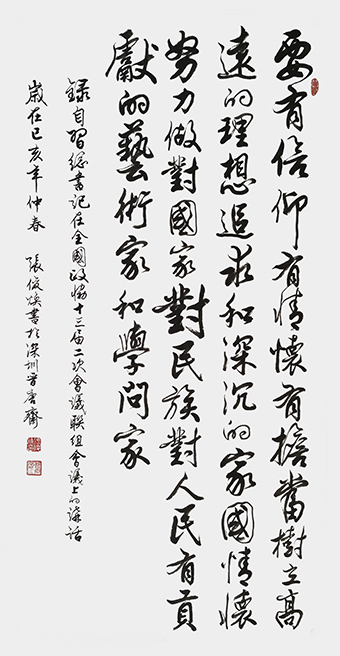 要有信仰有情懷有擔當樹立高
遠的理想追求和深沉的家國情懷
努力做對國家對民族對人民有貢
獻的藝術家和學問家
錄自習總書記在全國政協十三屆二次會議聯組會議上的講話
歲在己亥年仲春 張俊煥書於深圳晉唐齋